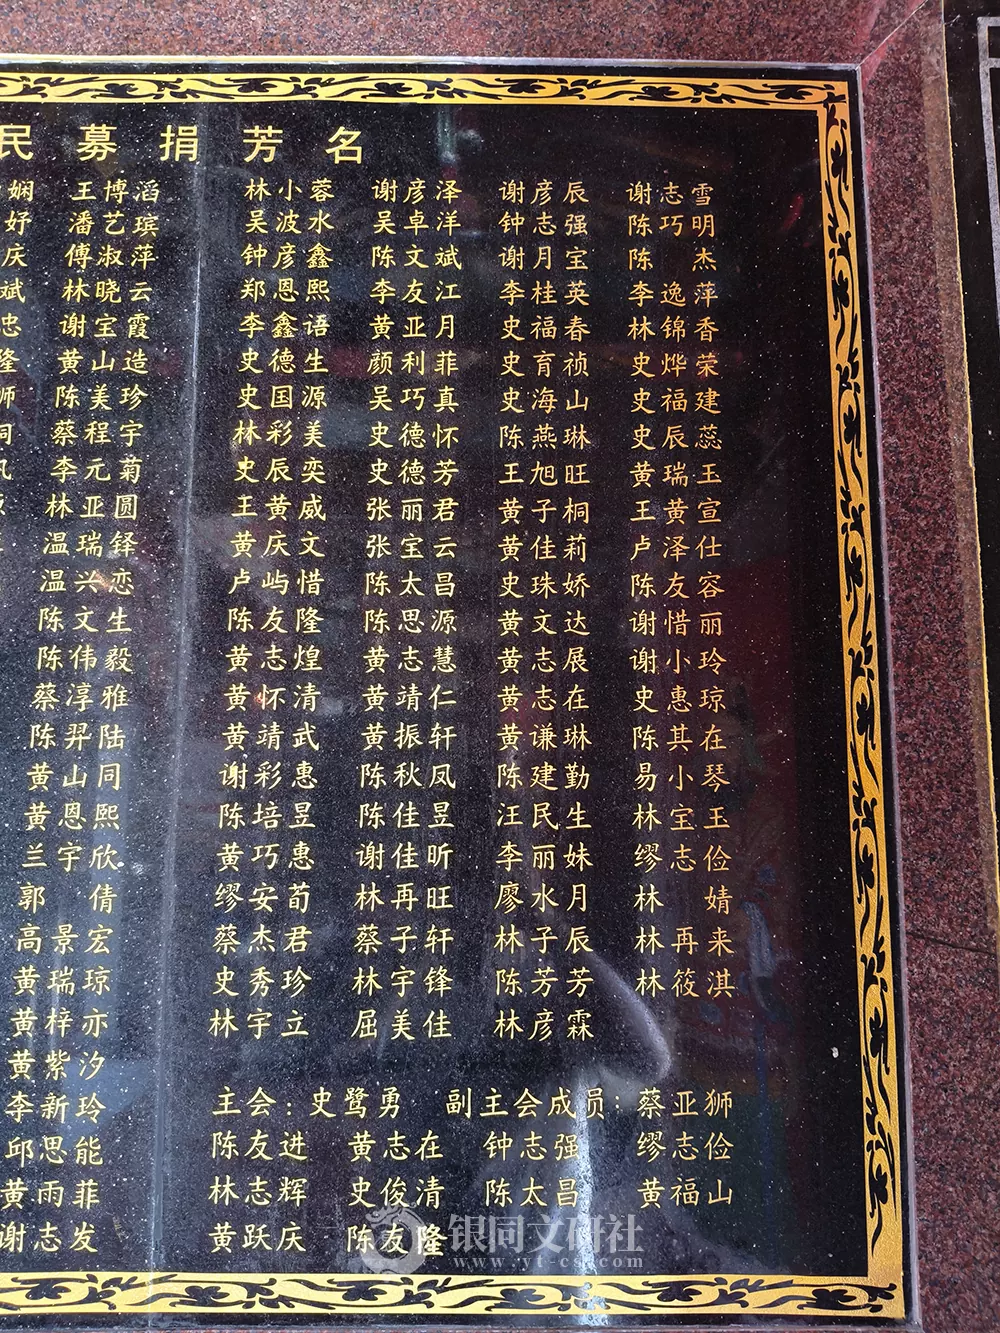 民募捐芳名
娴 王博滔 林小蓉 谢彦泽 谢彦辰 谢志雪
妤 潘艺瑸 吴波水 吴卓洋 钟志强 陈巧明
庆 傅淑萍 钟彦鑫 陈文斌 谢月宝 陈杰
斌 林晓云 郑恩熙 李友江 李桂英 李逸萍
忠 谢宝霞 李鑫语 黄亚月 史福春 林锦香
隆 黄山造 史德生 颜利菲 史育祯 史烨荣
师 陈美珍 史国源 吴巧真 史海山 史福建
蔡程宇 林彩美 史德怀 陈燕琳 史辰蕊
李元菊 史辰奕 史德芳 王旭旺 黄瑞玉
林亚圆 王黄威 张丽君 黄子桐 王黄宣
温瑞铎 黄庆文 张宝云 黄佳莉 卢泽仕
温兴恋 卢屿惜 陈太昌 史珠娇 陈友容
陈文生 陈友隆 陈思源 黄文达 谢惜丽
陈伟毅 黄志煌 黄志慧 黄志展 谢小玲
蔡淳雅 黄怀清 黄靖仁 黄志在 史惠琼
陈羿陆 黄靖武 黄振轩 黄谦琳 陈其在
黄山同 谢彩惠 陈秋凤 陈建勤 易小琴
黄恩熙 陈培昱 陈佳昱 汪民生 林宝玉
兰宇欣 黄巧惠 谢佳昕 李丽妹 缪志俭
郭倩 缪安荀 林再旺 廖水月 林婧
高景宏 蔡杰君 蔡子轩 林子辰 林再来
黄瑞琼 史秀珍 林宇锋 陈芳芳 林筱淇
黄梓亦 林宇立 屈美佳 林彦霖
黄紫汐
李新玲 主会：史鹭勇 副主会成员：蔡亚狮
邱思能 陈友进 黄志在 钟志强 缪志俭
黄雨菲 林志辉 史俊清 陈太昌 黄福山
谢志发 黄跃庆 陈友隆
银同文研社
www.yt-cs.com